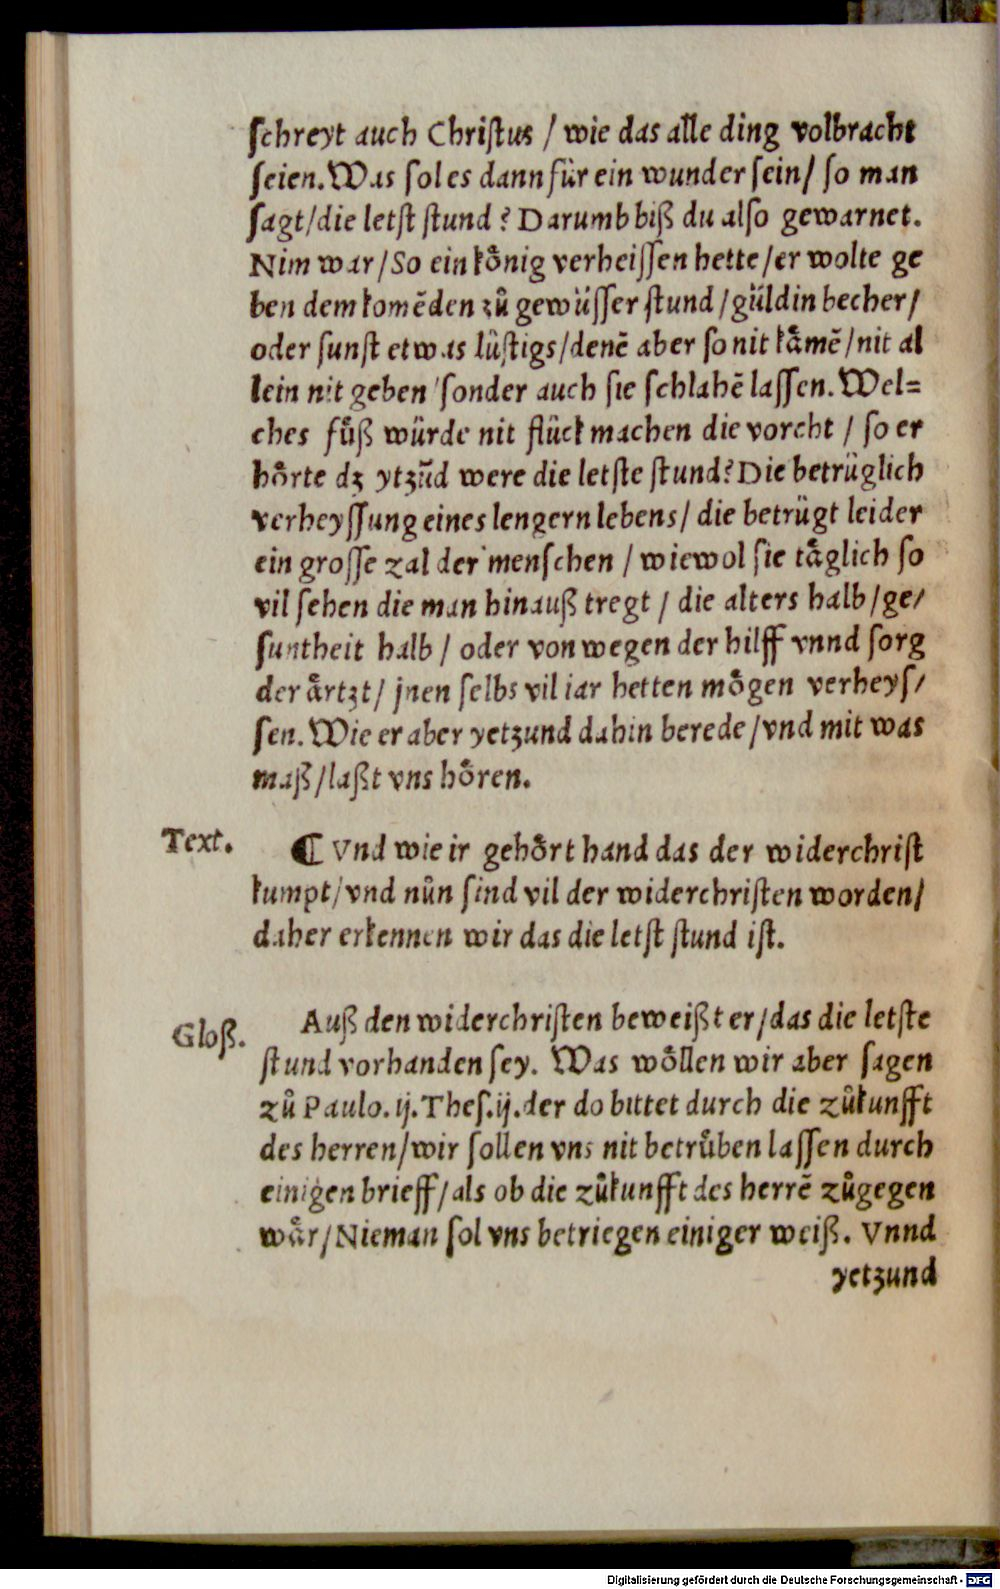 ſchreyt auch Chriſtus / wie das alle ding volbracht
ſeien. Was ſol es dann für ein wunder ſein / ſo man
ſagt / die letſt ſtund? Darumb biß du alſo gewarnet.
Nim war / So ein koͤnig verheiſſen hette / er wolte ge
ben dem komẽden zuͦ gewüſſer ſtund / güldin becher /
oder ſunſt etwas lüſtigs / denẽ aber ſo nit kaͤmẽ / nit al
lein nit geben / ſonder auch ſie ſchlahẽ laſſen. Wel=
ches fuͤß würde nit flück machen die vorcht / ſo er
hoͤrte dz ytzũd were die letſte ſtund? Die betrüglich
verheyſſung eines lengern lebens / die betrügt leider
ein groſſe zal der menſchen / wiewol ſie taͤglich ſo
vil ſehen die man hinauß tregt / die alters halb / ge/
ſuntheit halb / oder von wegen der hilff vnnd ſorg
der aͤrtzt / jnen ſelbs vil iar hetten moͤgen verheyſ/
ſen. Wie er aber yetzund dahin berede / vnd mit was
maß / laßt vns hoͤren.
Text. ¶ Vnd wie ir gehoͤrt hand das der widerchriſt
kumpt / vnd nuͦn ſind vil der widerchriſten worden /
daher erkennen wir das die letſt ſtund iſt.
Gloß. Auß den widerchriſten beweißt er / das die letſte
ſtund vorhanden ſey. Was woͤllen wir aber ſagen
zuͦ Paulo. ij. Theſ. ij. der do bittet durch die zuͦkunfft
des herren / wir ſollen vns nit betruͤben laſſen durch
einigen brieff / als ob die zuͦkunfft des herrẽ zuͦgegen
waͤr / Nieman ſol vns betriegen einiger weiß. Vnnd
yetzund
Digitalisierung gefördert durch die Deutsche Forschungsgemeinschaft - DFG